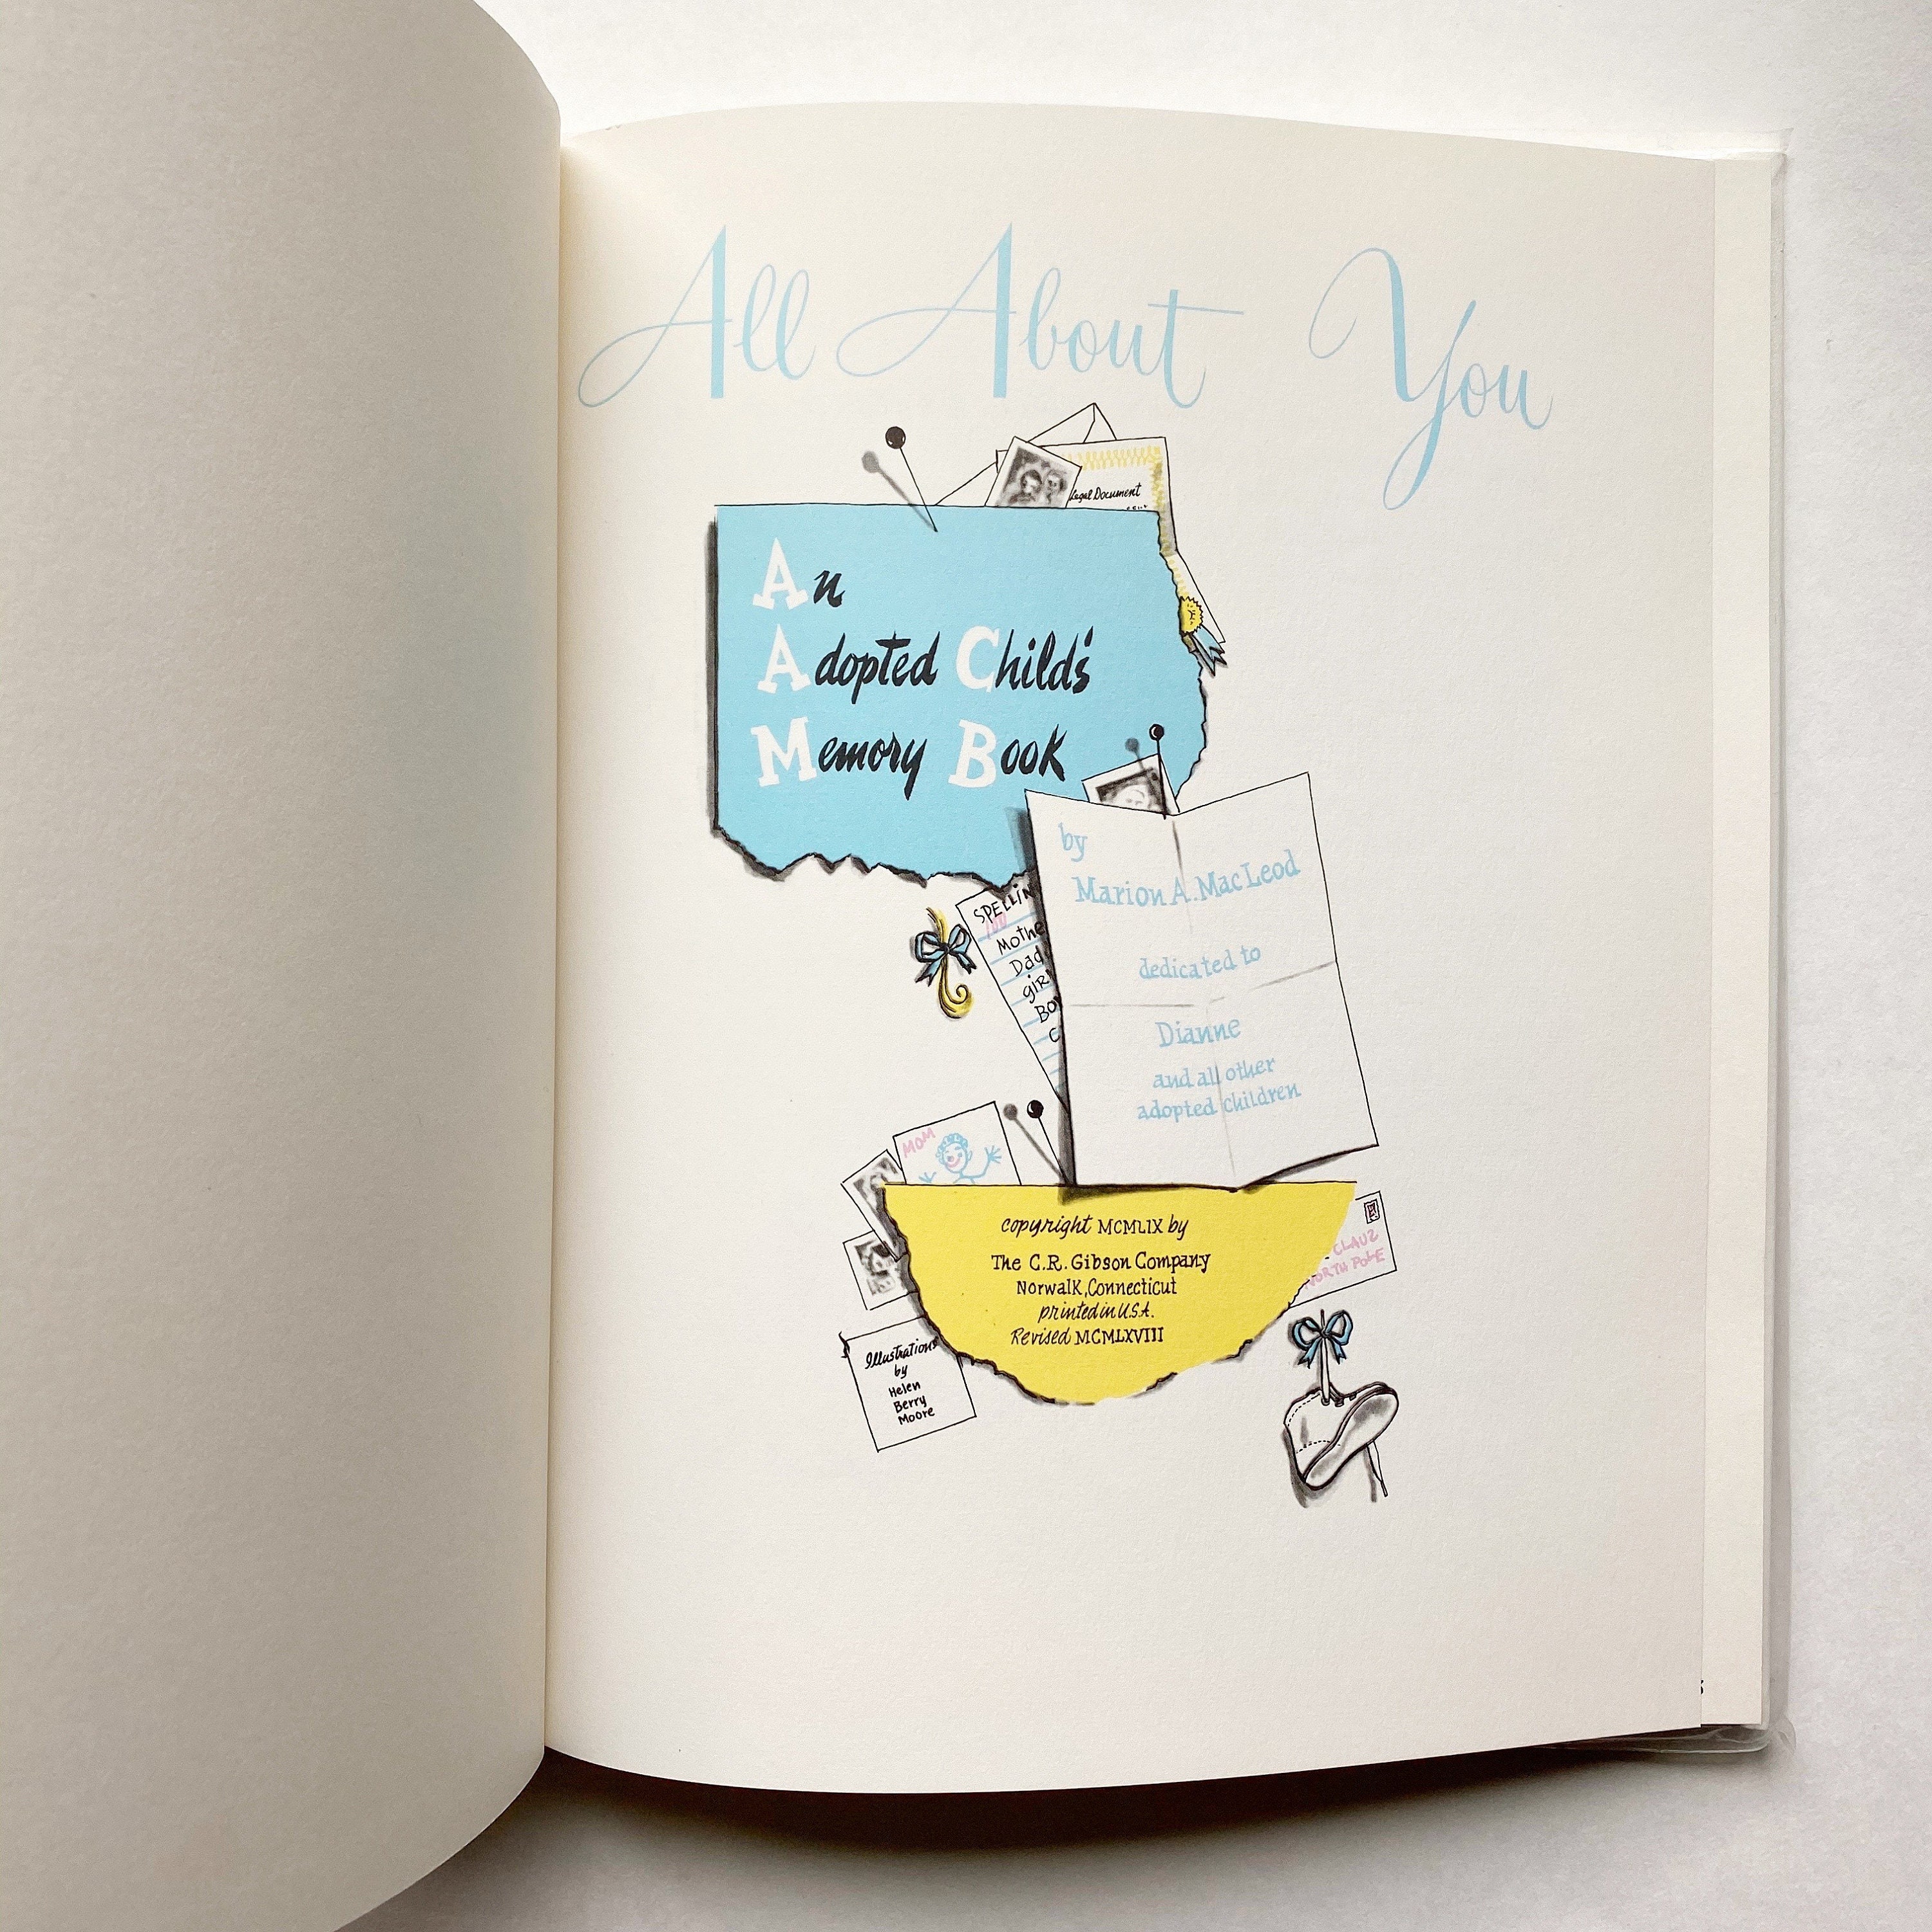 All About You
Legal Document
An
Adopted Child's
Memory Book
by
Marion A. MacLeod
dedicated to
Dianne
and all other
adopted children
SPELLIN
100
Mothe
Dad
giR
Bo
C
MOM
copyright MCMLIX by
The C.R. Gibson Company
Norwalk, Connecticut
printed in U.S.A.
Revised MCMLXVIII
CLAUS
NORTH POLE
Illustrations
by
Helen
Berry
Moore